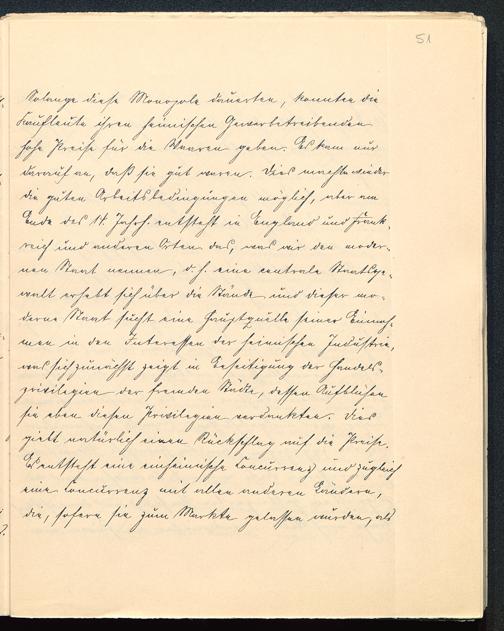 51
Solange diese Monopole dauerten, konnten die
Kaufleute ihren heimischen Gewerbetreibenden
hohe Preise für die Waaren geben. Es kam nur
darauf an, daß sie gut waren. Dies machte wieder
die guten Arbeitsbedingungen möglich, aber am
Ende des 14 Jahrh. entsteht in England und Frank-
reich und anderen Orten das, was wir den moder-
nen Staat nennen, d. h. eine centrale Staatsge-
walt erhebt sich über die Stände und dieser mo-
derne Staat sucht eine Hauptquelle seiner Einnah-
men in den Interessen der heimischen Industrie,
was sich zunächst zeigt in Beseitigung der Handels-
privilegien der fremden Städte, dessen Aufblühen
sie eben diesen Privilegien verdankten. Dies
giebt natürlich einen Rückschlag auf die Preise.
Es entsteht eine einheimische Concurrenz und zugleich
eine Concurrenz mit allen anderen Ländern,
die, sofern sie zum Markte gelassen wurden, als